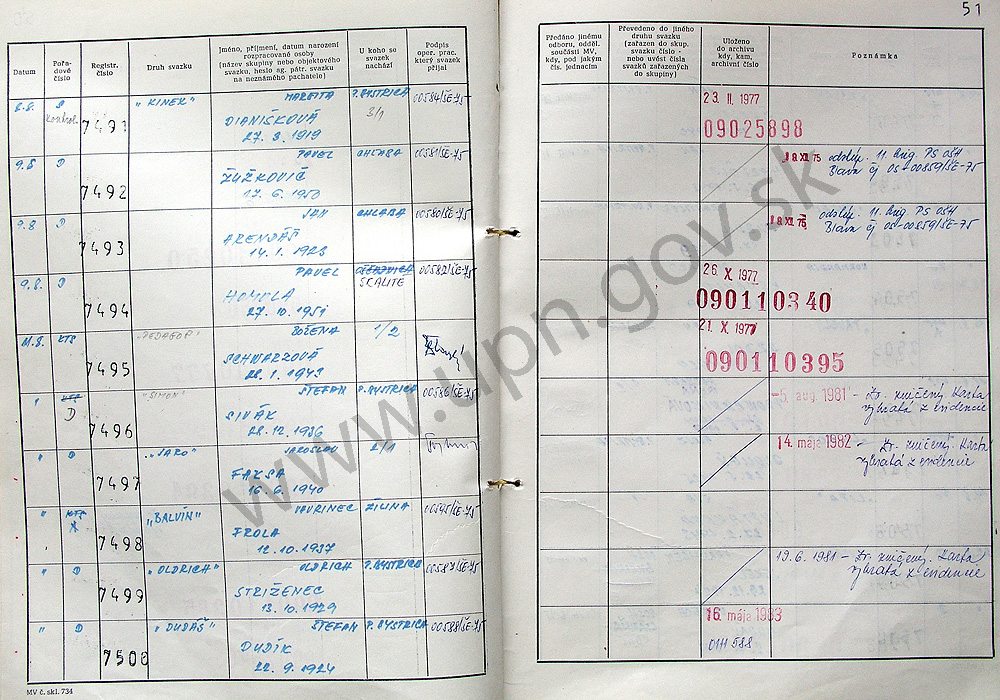 51
Datum
Pořa-
dové
číslo
Registr.
číslo
Druh svazku
Jméno, příjmení, datum narození
rozpracované osoby
(název skupiny nebo objektového
svazku, heslo ag. pátr. svazku
na neznámého pachatele)
U koho se
svazek
nachází
Podpis
oper. prac.
který svazek
přijal
Předáno jinému
odboru, odděl.
součásti MV,
kdy, pod jakým
čís. jednacím
Převedeno do jiného
druhu svazku
(zařazen do skup.
svazku číslo -
nebo uvést čísla
svazků zařazených
do skupiny)
Uloženo
do archivu
kdy, kam,
archivní číslo
Poznámka
8.8. D 7491 "KINEK" MARETTA P.BYSTRICA 00584/ŠE-75
kontrol. DIANIŠKOVÁ 3/1
27. 3. 1919
23. II. 1977
09025898
9.8 D 7492 PAVEL CHĽABA 00581/ŠE-75
ŽUŽKOVIČ
17. 6. 1950
18 XII. 75 odslúp. 11. brig. PS OSH
Blava čj OS-00859/ŠE-75
9.8 D 7493 JÁN CHLABA 00580/ŠE-75
ARENDÁŠ
14. 1. 1923
18 XII. 75 odslúp. 11. brig. PS OSH
Blava čj OS-00859/ŠE-75
9.8. D 7494 PAVEL 00582/ŠE-75
SKALITE
HOMOLA
27. 10. 1951
26. X. 1977
090110340
11.8. KTS 7495 "PEDAGOG" BOŽENA 1/2
SCHWARZOVÁ
28. 1. 1943
21. X. 1977
090110395
" D 7496 "SIMON" ŠTEFAN P.BYSTRICA 00586/ŠE-75
SIVÁK
28. 12. 1936
-5. aug. 1981 - Zv. zničený. Karta
vybratá z evidencie
" D 7497 "JARO" JAROSLAV 2/1
FAKSA
16. 6. 1940
14. mája 1982 - Zv. zničený. Karta
vybratá z evidencie
" KTS 7498 "BALVÍN" VAVRINEC ŽILINA 00545/ŠE-75
FROLA
12. 10. 1937
" D 7499 "OLDRICH" OLDRICH P.BYSTRICA 00587/ŠE-75
STRIŽENEC
13. 10. 1929
19. 6. 1981 - Zv. zničený. Karta
vybratá z evidencie
" D 7500 "DUDÁŠ" ŠTEFAN P.BYSTRICA 00588/ŠE-75
DUDÍK
22. 9. 1924
16. mája 1983
011 588
MV č. skl. 734
www.upn.gov.sk